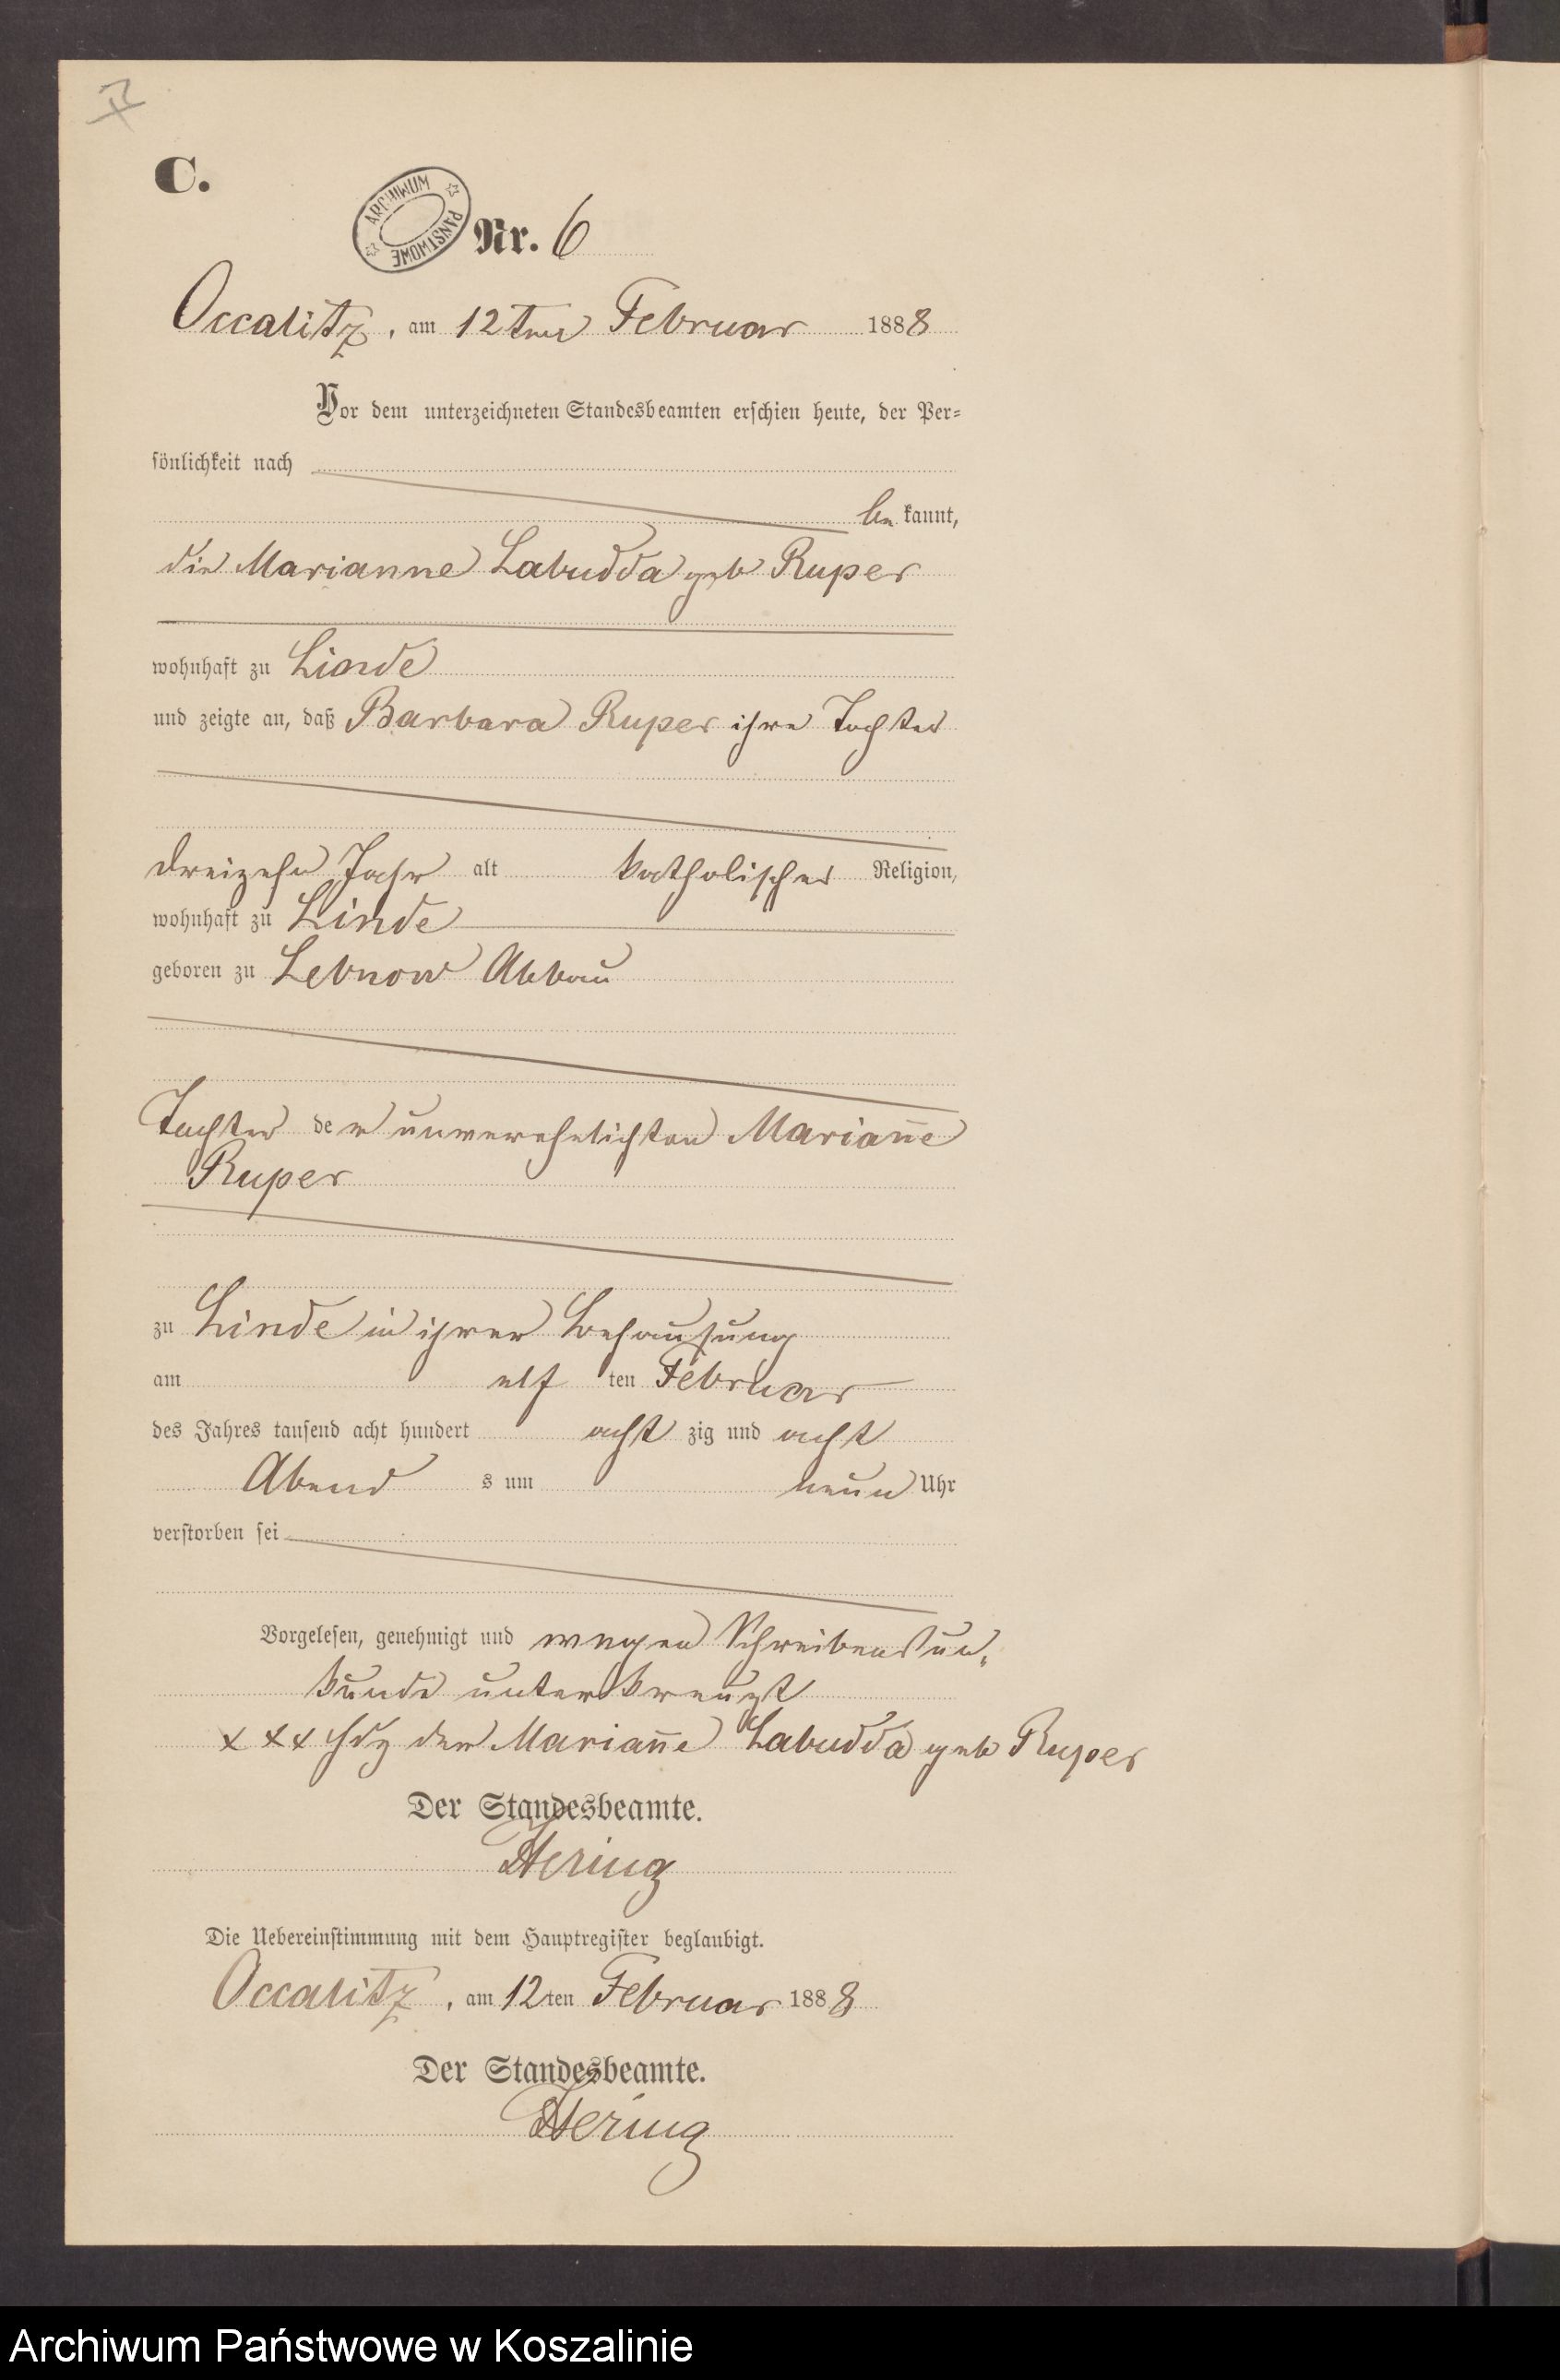 C.
ARCHIWUM PAŃSTWOWE
Nr. 6
Occalitz, am 12ten Februar 1888
Vor dem unterzeichneten Standesbeamten erschien heute, der Per-
sönlichkeit nach
be kannt,
die Marianne Labudda geb Ruper
wohnhaft zu Linde
und zeigte an, daß Barbara Ruper ihre Tochter
dreizehn Jahr alt katholischer Religion,
wohnhaft zu Linde
geboren zu Lebnow Abbau
Tochter der unverehelichten Marian̄e
Ruper
zu Linde in ihrer Behausung
am elf ten Februar
des Jahres tausend acht hundert acht zig und acht
Abend s um neun Uhr
verstorben sei
Vorgelesen, genehmigt und wegen Schreibensun-
kunde unterkreuzt
x x x Hdz der Marian̄e Labudda geb Ruper
Der Standesbeamte.
Hering
Die Uebereinstimmung mit dem Hauptregister beglaubigt.
Occalitz, am 12ten Februar 1888
Der Standesbeamte.
Hering
Archiwum Państwowe w Koszalinie